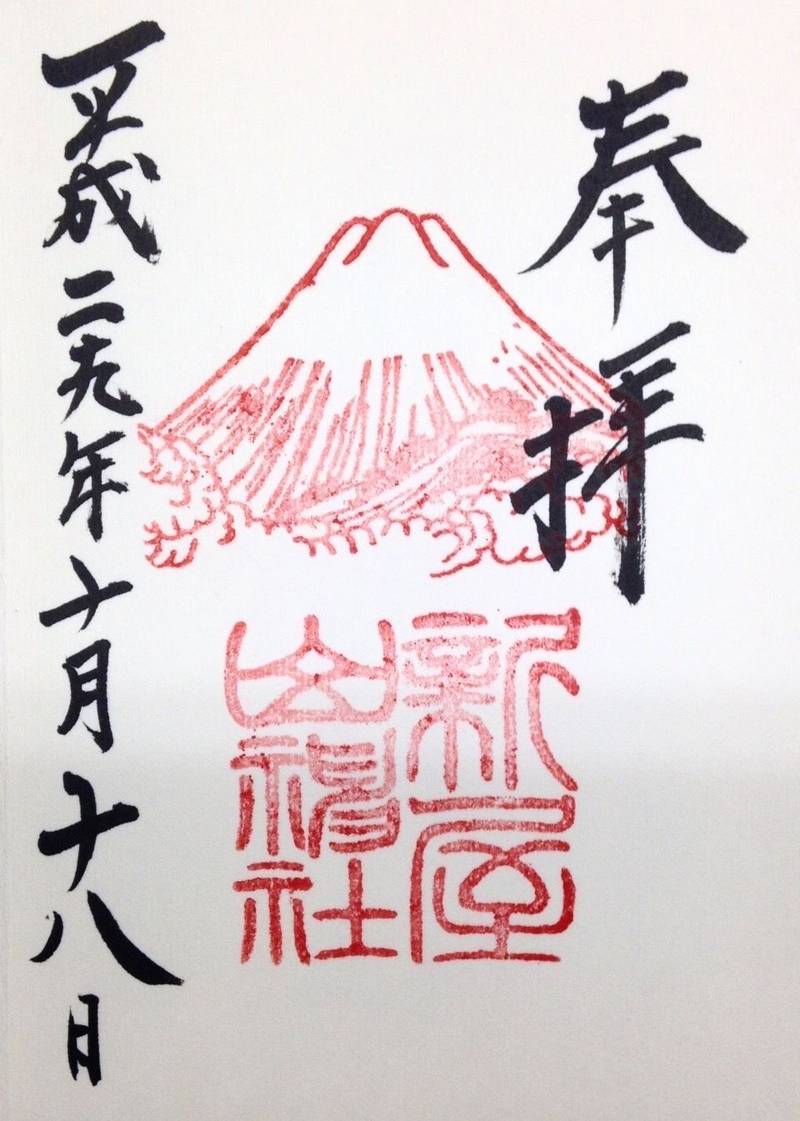 奉拝
新屋
山神社
平成二十九年十月十八日